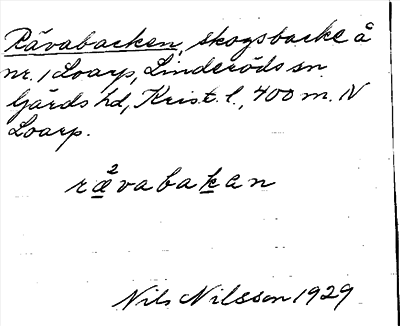 Rävabacken, skogsbacke å
nr. 1 Loarp, Linderöds sn
Gärds hd, Krist. l., 400 m. N
Loarp.
ræ²vabakan
Nils Nilsson 1929